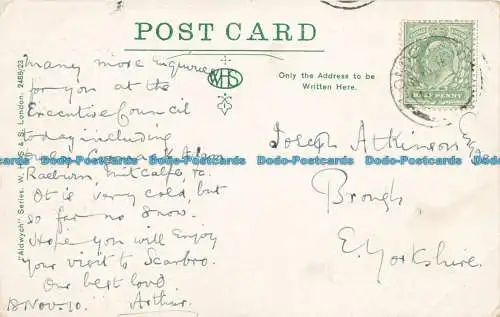 POST CARD
many more enquiries
for you at the
Executive Council
today including
Raeburn, Metcalfe, &c.
It is very cold, but
so far no snow.
Hope you will enjoy
your visit to Scarbro.
Our best love
Arthur
18 Nov. 10.
"Aldwych" Series. W. H. S & S. London. 2488/23
WHS
Only the Address to be
Written Here.
HALF PENNY
Joseph Atkinson
Brough
E. Yorkshire
Dodo-Postcards Dodo-Postcards Dodo-Postcards Dodo-Postcards Dodo-Postcards